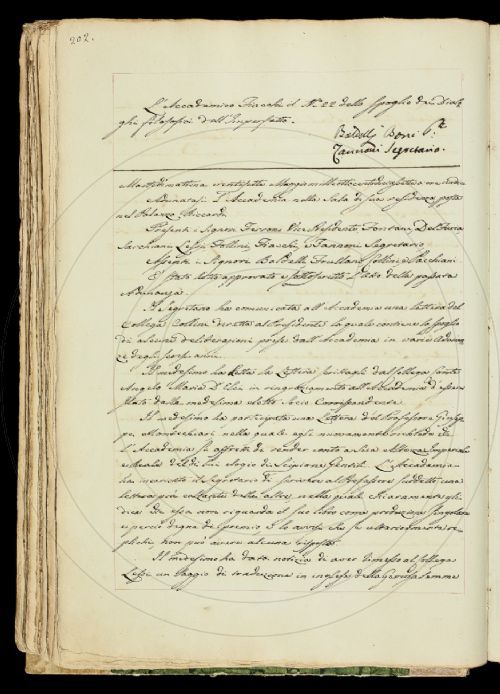 202.
L'Accademico Fiacchi il N.º 22 dello spoglio dei Dialo
ghi filosofici dell'Imperfetto.
Baldelli Boni P.te
Zannoni Segretario.
Martedì mattina ventisette Maggio mille ottocento diciotto a ore undici
Adunatasi l'Accademia nella Sala di sua residenza posta
nel Palazzo Riccardi.
Presenti i Signori Ferroni Vice Presidente Fontani Del Furia
Sarchiani Lessi Follini Fiacchi, e Zannoni Segretario
Assenti i Signori Baldelli Frullani Collini e Sacchiani
È stato letto approvato e sottoscritto l'Atto della passata
Adunanza.
Il Segretario ha comunicata all'Accademia una lettera del
Collega Collini diretta al Presidente la quale contiene lo spoglio
di alcune deliberazioni prese dall'Accademia in varie Adunan
ze degli scorsi anni.
Il medesimo ha letta la Lettera scrittagli dal collega Conte
Angelo Maria D'Elci in ringraziamento all'Accademia di essere
stato dalla medesima eletto Socio Corrispondente.
Il medesimo ha partecipata una Lettera del Professore Giusep
pe Montecchiari nella quale egli nuovamente richiede che
l'Accademia si affretti di render conto a Sua Altezza Imperiale
e Reale del di lui elogio di Scipione Gentili. L'Accademia
ha incaricato il Segretario di scrivere al Professore suddetto una
lettera più calzante della altre, nella quale chiaramente gli
dica che essa non riguarda il suo libro come produzione singolare
e perciò degna di premio e lo avvisi che se ulteriormente re-
plichi, non può avere alcuna risposta.
Il medesimo ha data notizia di aver rimesso al Collega
Lessi un Saggio di traduzione in inglese della Gerusalemme